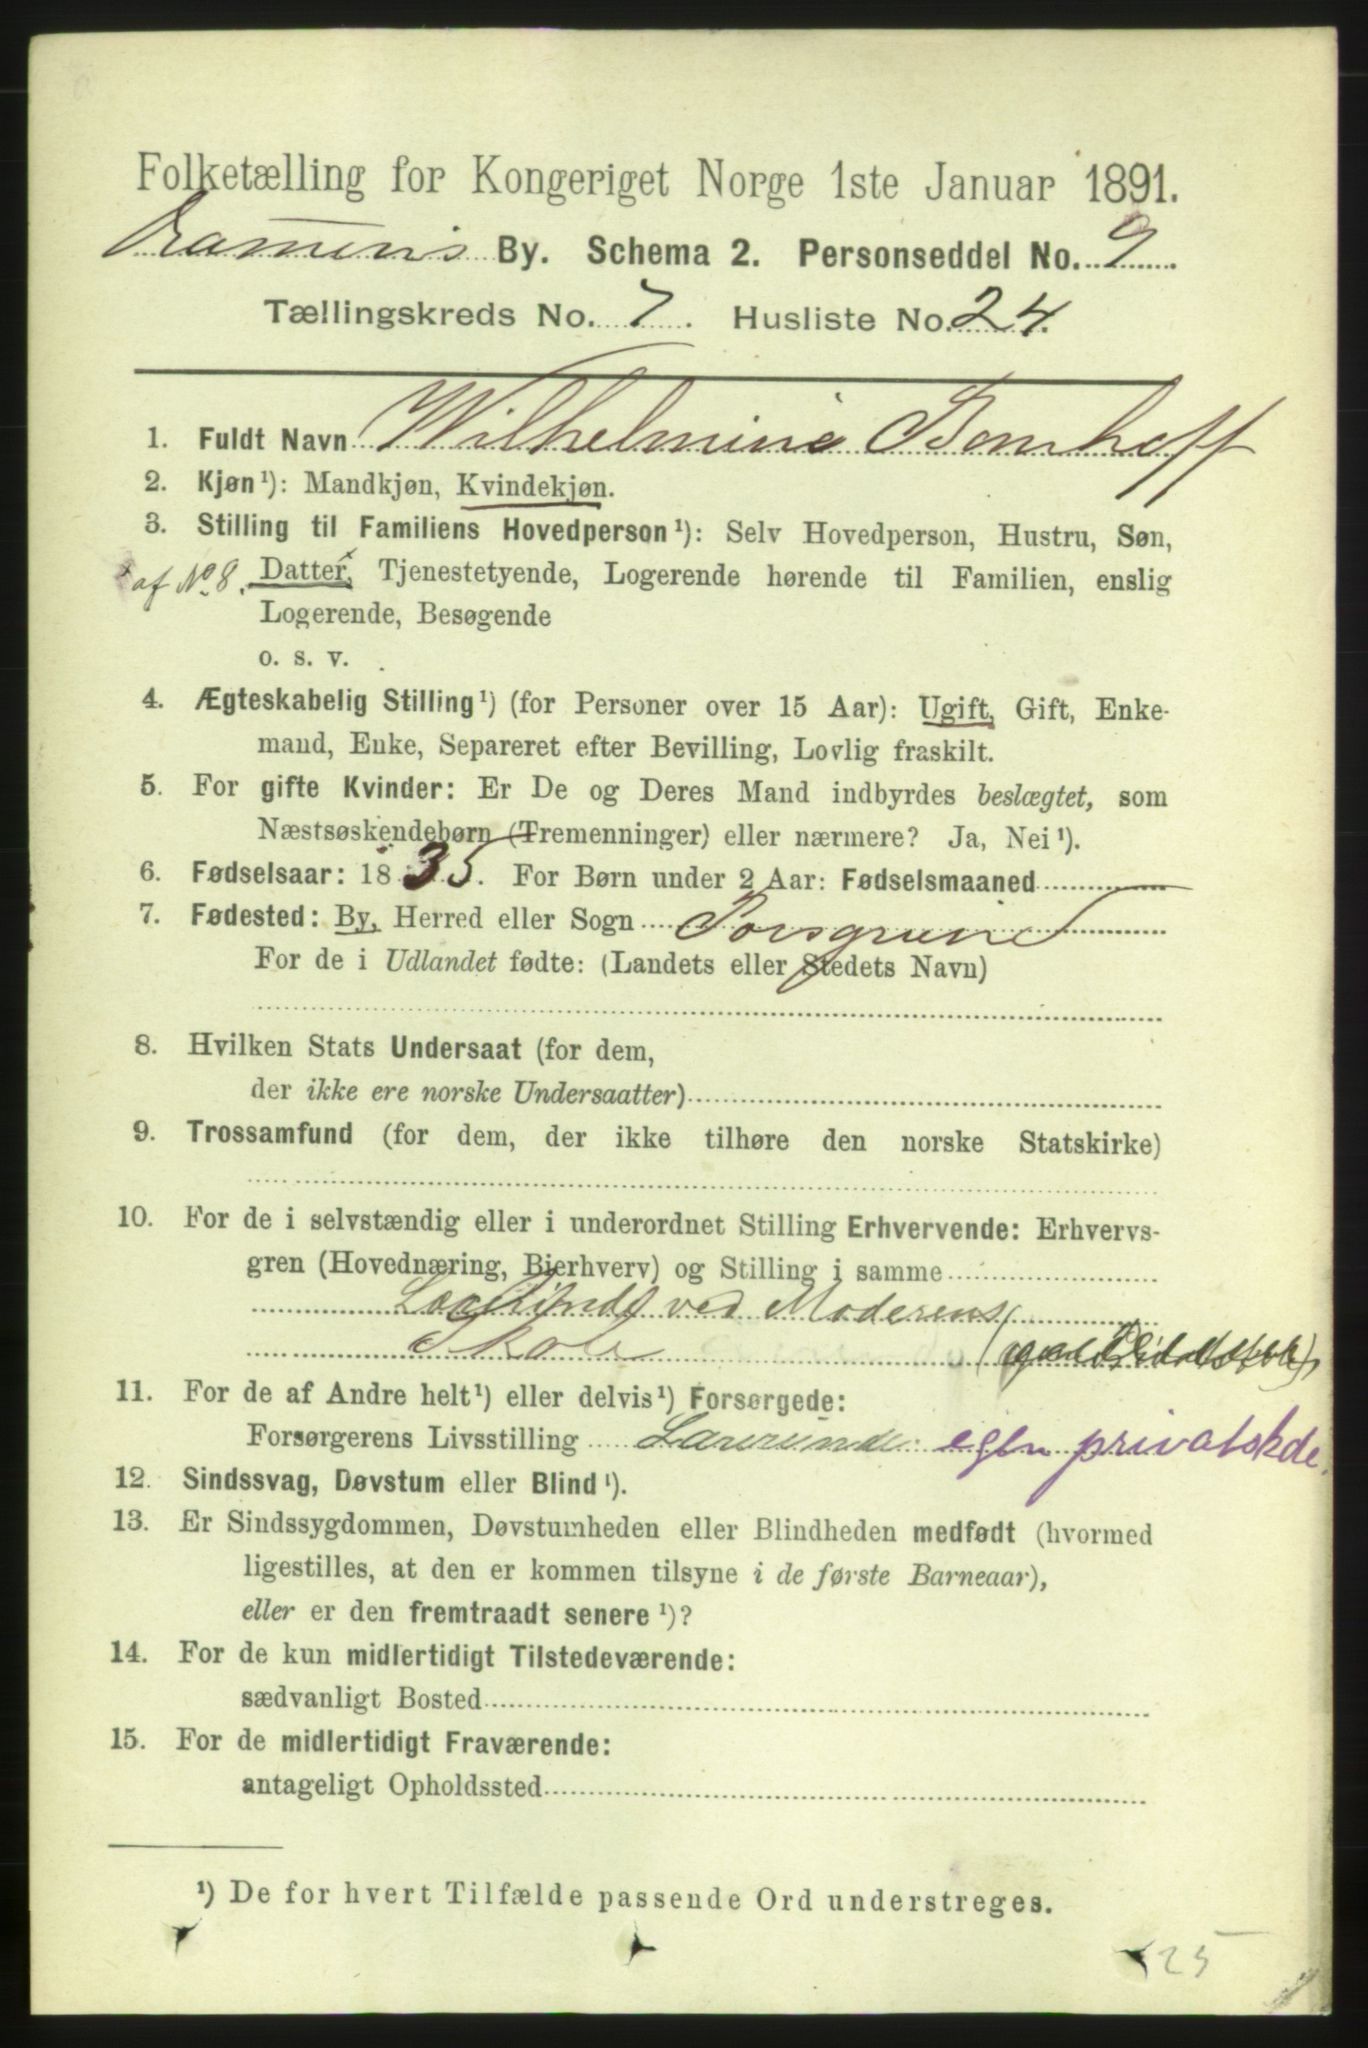 Folketælling for Kongeriget Norge 1ste Januar 1891.
Drammens By. Schema 2. Personseddel No. 9
Tællingskreds No. 7. Husliste No. 24.
1. Fuldt Navn Wilhelmine Bomhoff
2. Kjøn ¹): Mandkjøn, Kvindekjøn.
3. Stilling til Familiens Hovedperson ¹): Selv Hovedperson, Hustru, Søn,
x af No. 8. Datter, x Tjenestetyende, Logerende hørende til Familien, enslig
Logerende, Besøgende
o. s. v.
4. Ægteskabelig Stilling ¹) (for Personer over 15 Aar): Ugift, Gift, Enke-
mand, Enke, Separeret efter Bevilling, Lovlig fraskilt.
5. For gifte Kvinder: Er De og Deres Mand indbyrdes beslægtet, som
Næstsøskendebørn (Tremenninger) eller nærmere? Ja, Nei ¹).
6. Fødselsaar: 1835. For Børn under 2 Aar: Fødselsmaaned
7. Fødested: By, Herred eller Sogn Porsgrund
For de i Udlandet fødte: (Landets eller Stedets Navn)
8. Hvilken Stats Undersaat (for dem,
der ikke ere norske Undersaatter)
9. Trossamfund (for dem, der ikke tilhøre den norske Statskirke)
10. For de i selvstændig eller i underordnet Stilling Erhvervende: Erhvervs-
gren (Hovednæring, Bierhverv) og Stilling i samme
ved Moderens
Skole
11. For de af Andre helt ¹) eller delvis ¹) Forsørgede:
Forsørgerens Livsstilling Lærerinde egen privatskole
12. Sindssvag, Døvstum eller Blind ¹).
13. Er Sindssygdommen, Døvstumheden eller Blindheden medfødt (hvormed
ligestilles, at den er kommen tilsyne i de første Barneaar),
eller er den fremtraadt senere ¹)?
14. For de kun midlertidigt Tilstedeværende:
sædvanligt Bosted
15. For de midlertidigt Fraværende:
antageligt Opholdssted
¹) De for hvert Tilfælde passende Ord understreges.
25